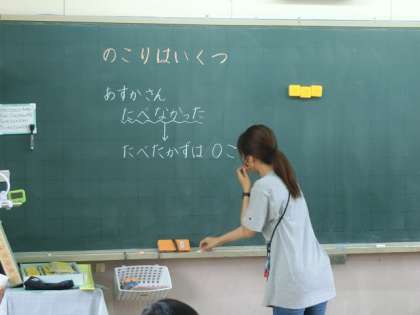 のこりはいくつ
あすかさん
たべなかった
↓
たべたかずは 0こ